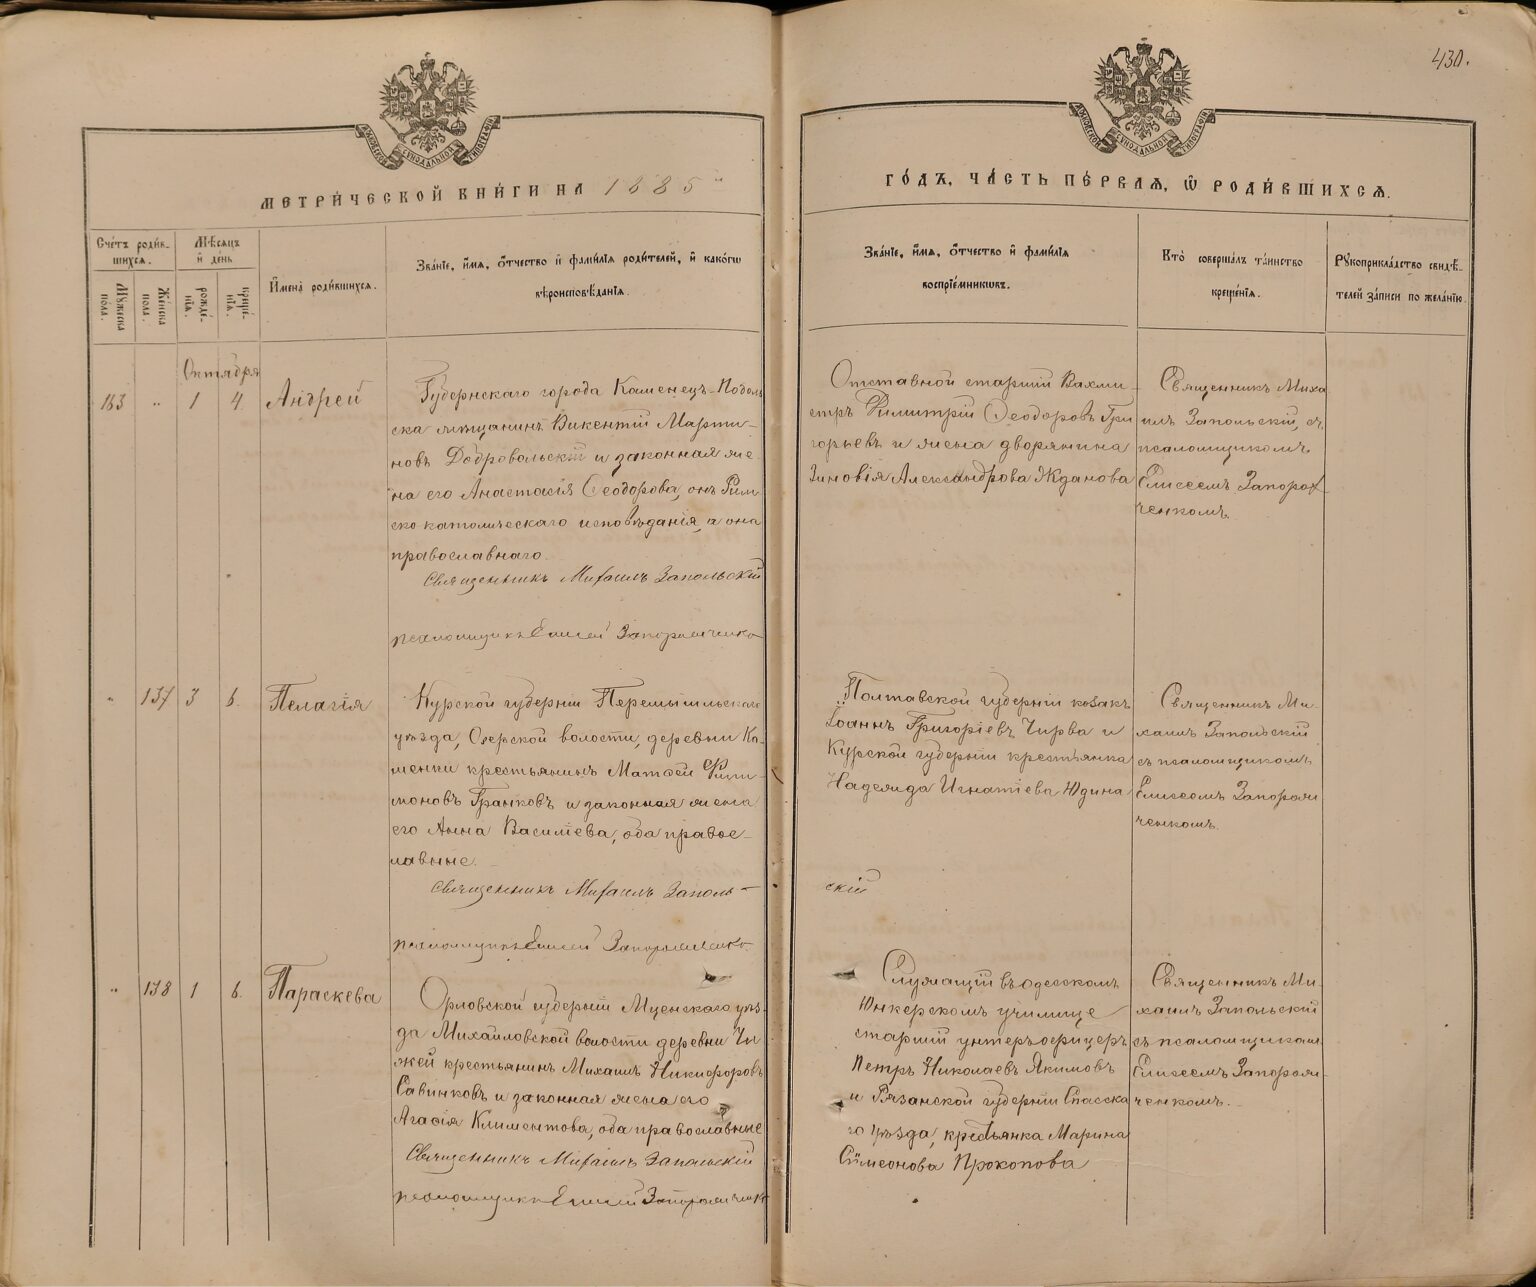 430.
МОСКОВСКОЙ СѴНОДАЛЬНОЙ ТИПОГРАФІИ
МОСКОВСКОЙ СѴНОДАЛЬНОЙ ТИПОГРАФІИ
МЕТРИ́ЧЕСКОЙ КНИ́ГИ НА 1885
ГО́ДЪ, ЧА́СТЬ ПЕ́РВАЯ, Ѡ҆ РОДИ́ВШИХСЯ.
Сче́тъ роди́вшихся.
Му́жеска пола.
Же́нска пола.
Мѣ́сяцъ и҆ день
рожде́нїя.
креще́нїя.
И҆мена̀ роди́вшихся.
Зва́нїе, и҆́мя, ѻ҆́тчество и҆ фами́лїя роди́телей, и҆ како́гѡ
вѣроисповѣ́данїя.
Зва́нїе, и҆́мя, ѻ҆́тчество и҆ фами́лїя
воспрїе́мникѡвъ.
Кто̀ соверша́лъ та́инство
креще́нїя.
Рꙋкоприкла́дство свидѣ́-
телей за́писи по жела́нїю.
Октября
183 " 1 4. Андрей
Губернскаго города Каменецъ-Подоль
ска мѣщанинъ Викентій Марти-
новъ Добровольскій и законная же-
на его Анастасія Ѳеодорова, онъ Рим
ско католическаго исповѣданія, а она
православнаго.
Священникъ Михаилъ Запольскій
псаломщикъ Елисей Запорожченко
Отставной старшій Вахми-
стръ Димитрій Ѳеодоровъ Гри
горьевъ и жена дворянина
Зиновія Александрова Жданова
Священникъ Миха
илъ Запольскій, съ
псаломщикомъ
Елисеемъ Запорож-
ченкомъ.
" 137 3 6. Пелагія
Курской губерніи
уѣзда, Озерской волости, деревни Ка-
менки крестьянинъ Матѳей Фили-
моновъ Гранковъ и законная жена
его Анна Василіева, оба правос-
лавные.
Священникъ Михаилъ Заполь-
скій
псаломщикъ Елисей Запорожченко.
Полтавской губерніи козакъ
Іоаннъ Григоріевъ Чирва и
Курской губерніи крестьянка
Надежда Игнатіева Юдина
Священникъ Ми-
хаилъ Запольскій
съ псаломщикомъ
Елисеемъ Запорож
ченкомъ.
" 138 1 6. Параскева
Орловской губерніи Мценскаго уѣз-
да Михайловской волости деревни
крестьянинъ Михаилъ Никифоровъ
Савинковъ и законная жена его
Агаѳія Климентова, оба православные
Священникъ Михаилъ Запольскій
псаломщикъ Елисей Запорожченко
Служащій въ Одесскомъ
Юнкерскомъ училище
старшій унтеръ офицеръ
Петръ Николаевъ Якимовъ
и Рязанской губерніи Спасска
го уѣзда, крестьянка Марина
Сѵмеонова Прокопова
Священникъ Ми-
хаилъ Запольскій
съ псаломщикомъ
Елисеемъ Запорож-
ченкомъ.